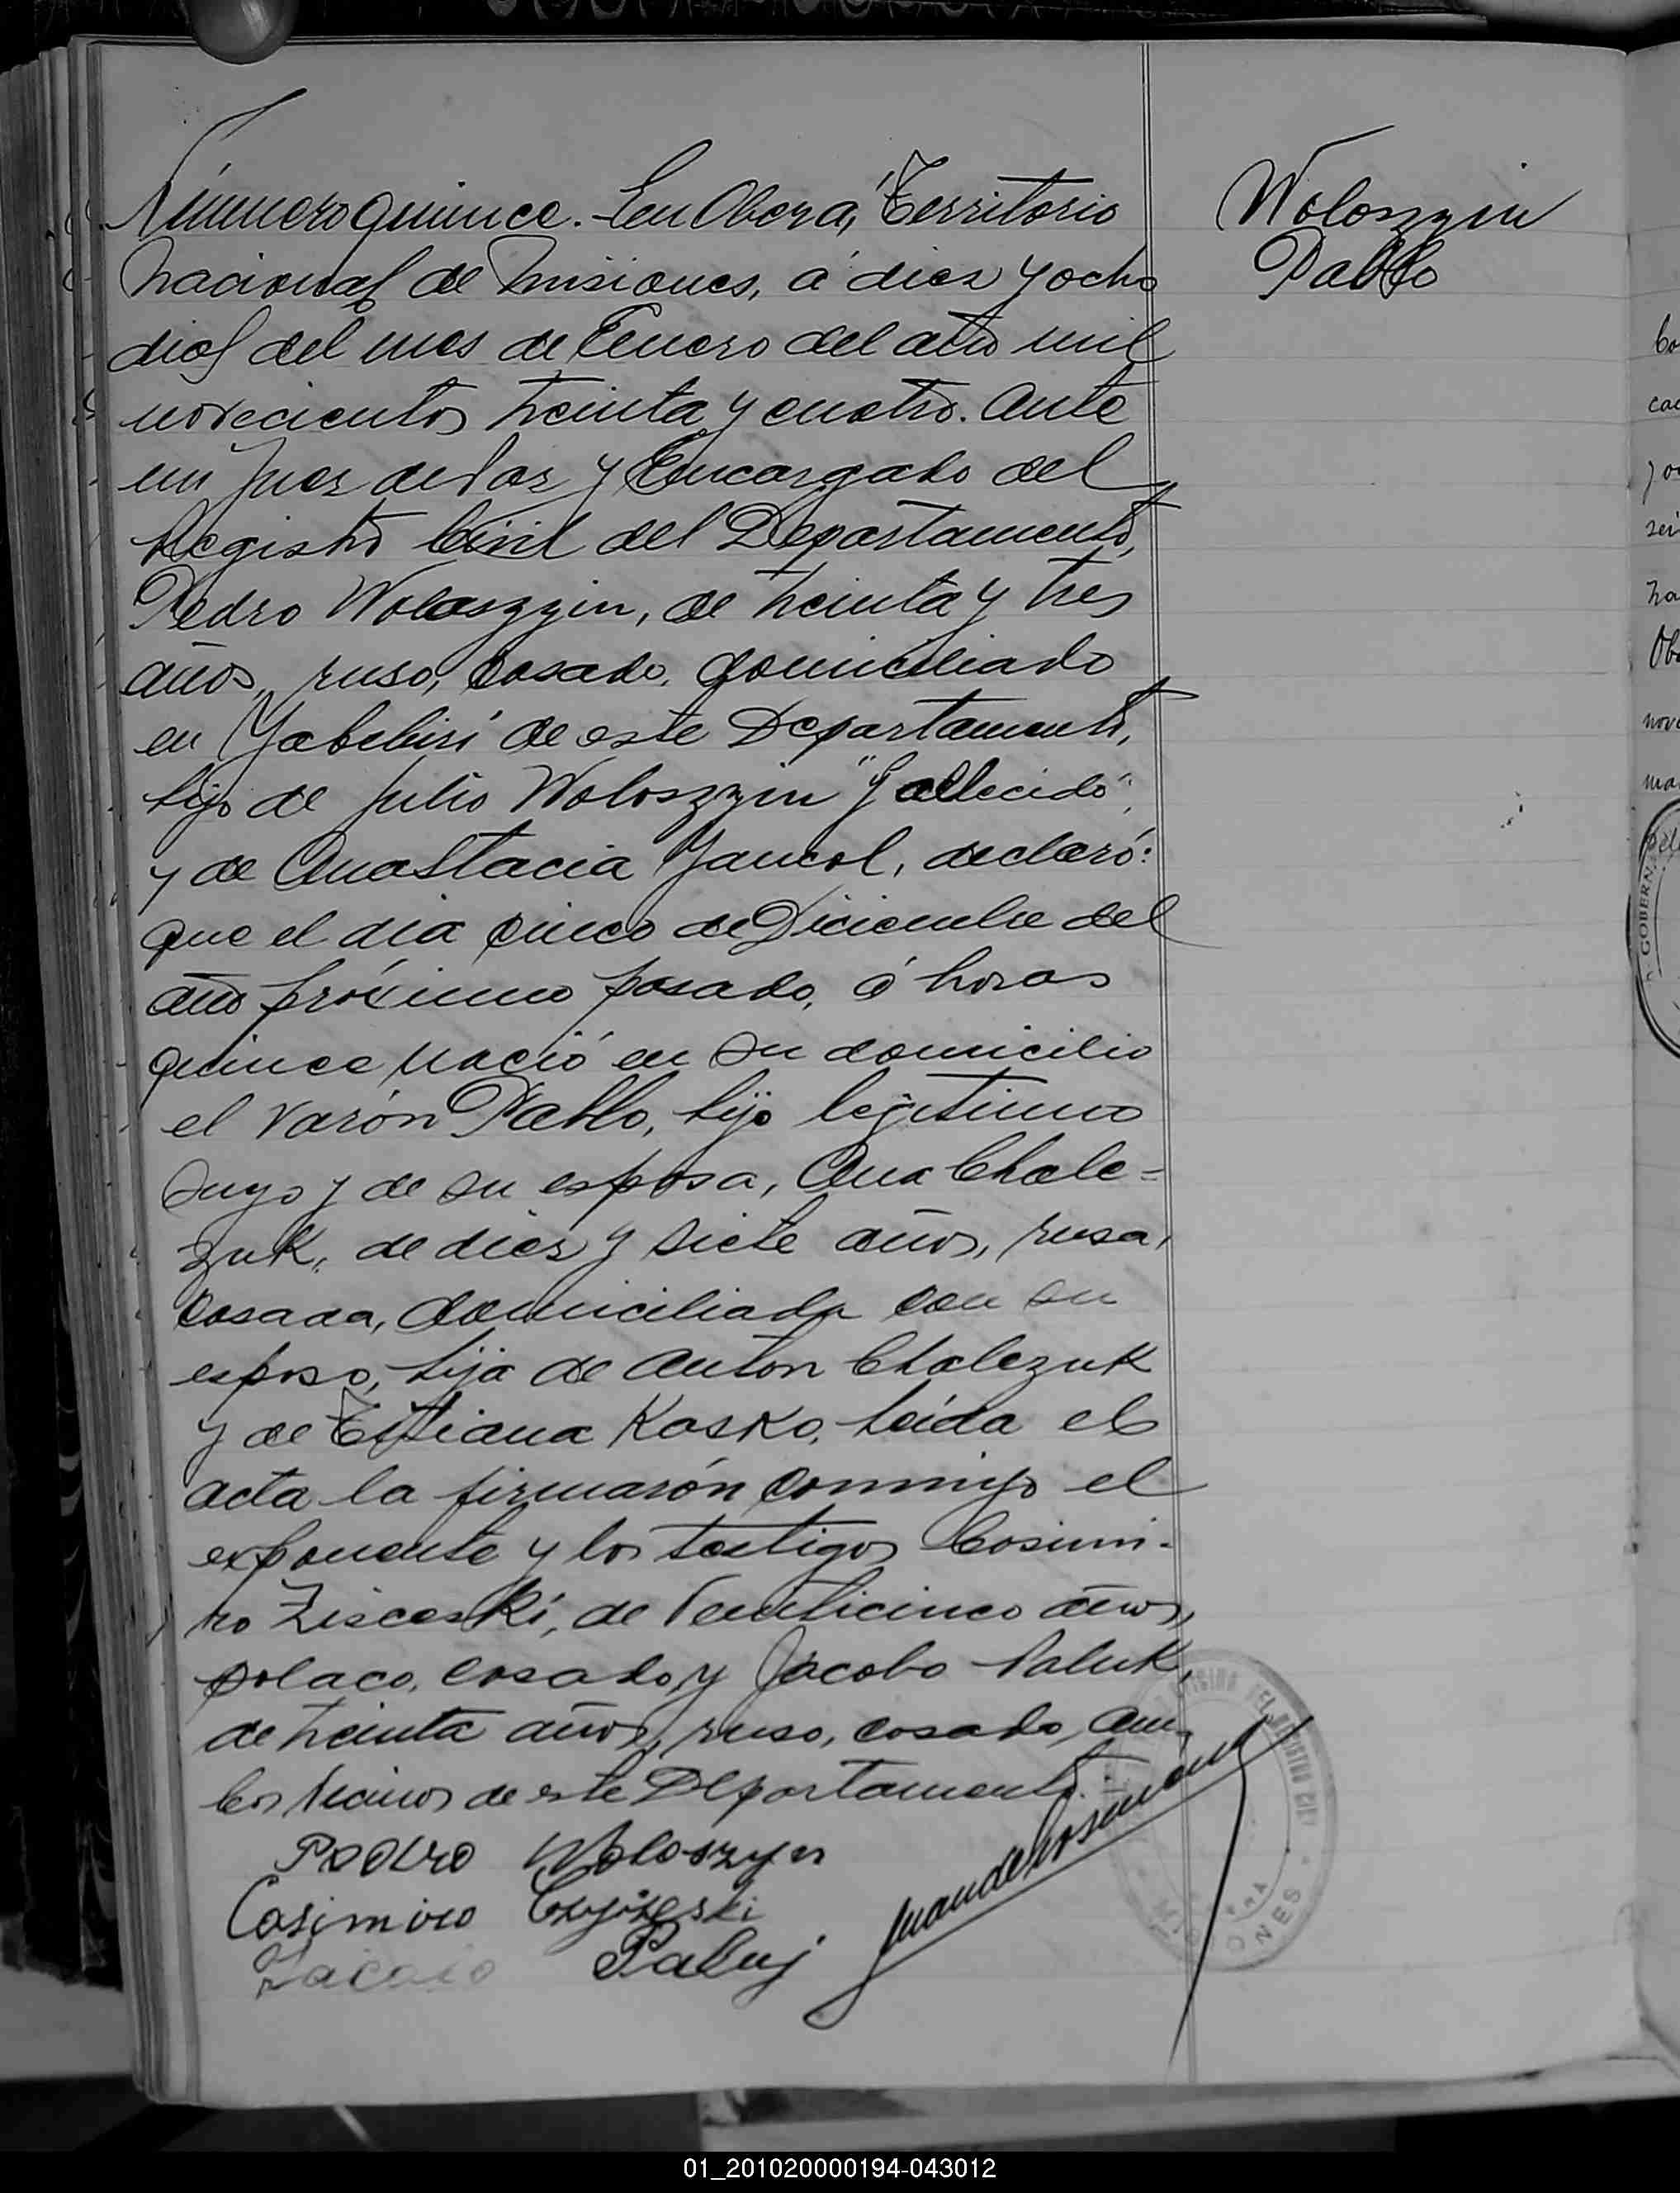 Número quince. En Oberá, Territorio
Nacional de Misiones, á diez y ocho
dias del mes de Enero del año mil
novecientos treinta y cuatro. Ante
mi Juez de Paz y Encargado del
Registro Civil del Departamento,
Pedro Woloszzin, de treinta y tres
años, ruso, casado, domiciliado
en Yabebirí de este Departamento,
hijo de Julio Woloszzin "fallecido",
y de Anastacia Jancol, declaró:
que el dia cinco de Diciembre del
año próximo pasado, á horas
quince nació en su domicilio
el varón Pablo, hijo legitimo
suyo y de su esposa, Ana Chale=
zuk, de diez y siete años, rusa,
casada, domiciliada con su
esposo, hija de Anton Chalezuk
y de Tistiana Kosko. Leida el
acta la firmarón conmigo el
exponente y los testigos Casimi-
ro Zisceski, de venticinco años,
polaco, casado, y Jacobo Paluk,
de treinta años, ruso, casado, am-
bos vecinos de este Departamento.
Pedro Woloszyn
Casimiro
Paluj
Woloszzin
Pablo
GOBERN
MISIONES
01_201020000194-043012